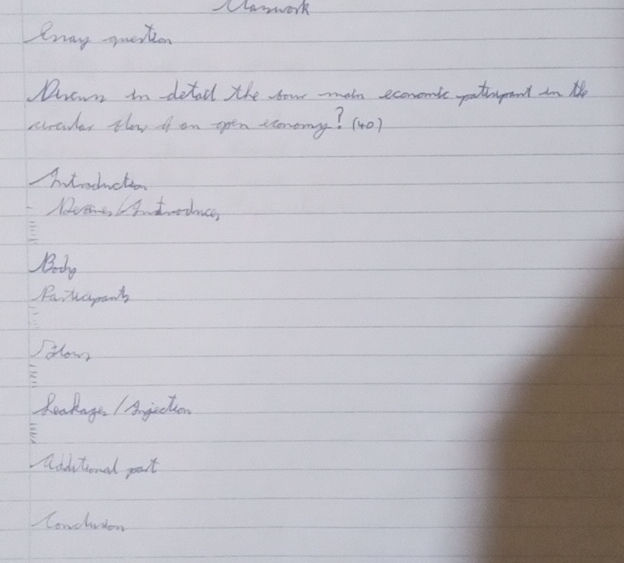 Classwork
Essay question
Discuss in detail the four main economic patispant in the
circular flow of an open economy? (40)
Introduction
Defines/Introduces
Body
Participants
Flows
Leakages/Injection
Additional part
Conclusion